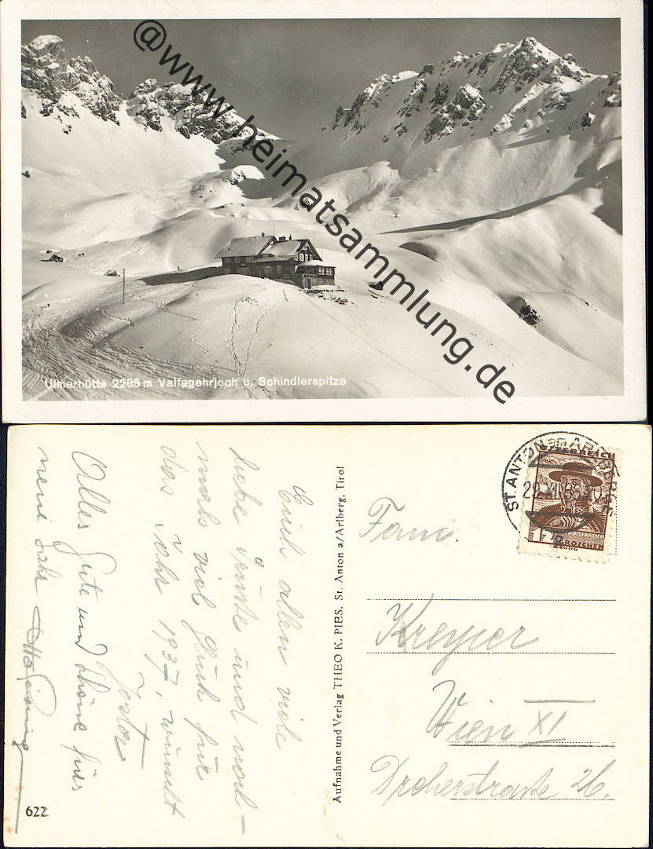 @www.heimatsammlung.de
Ulmerhütte 2285 m Valfagehrjoch u. Schindlerspitze
Euch allen viele
liebe Grüsse und noch-
mals viel Glück für
das Jahr 1937, wünscht
Alles Gute und schöne für's
neue Jahr
Aufnahme und Verlag THEO K. PIBS. St. Anton a/Arlberg, Tirol
622
ST. ANTON am ARLBERG
ÖSTERREICH
GROSCHEN
Fam.
Kreyper
Wien XI
Dreherstraße 26.